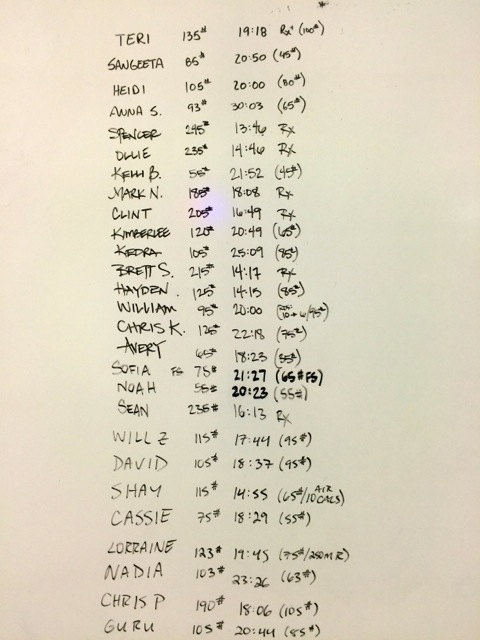 TERI 135# 19:18 Rx+ (100#)
SANGEETA 85# 20:50 (45#)
HEIDI 105# 20:00 (80#)
ANNA S. 93# 30:03 (65#)
SPENCER 245# 13:46 Rx
OLLIE 235# 14:46 Rx
KELLI B. 55# 21:52 (45#)
MARK N. 185# 18:08 Rx
CLINT 205# 16:49 Rx
KIMBERLEE 120# 20:49 (65#)
KEDRA 105# 25:09 (85#)
BRETT S. 215# 14:17 Rx
HAYDEN 125# 14:15 (85#)
WILLIAM 95# 20:00
CHRIS K. 125# 22:18 (75#)
AVERY 65# 18:23 (35#)
SOFIA FS 75# 21:27 (65#FS)
NOAH 55# 20:23 (55#)
SEAN 235# 16:13 Rx
WILL Z 115# 17:44 (95#)
DAVID 105# 18:37 (95#)
SHAY 115# 14:55 (65#/10 AIR CALS)
CASSIE 75# 18:29 (55#)
LORRAINE 123# 19:45 (75#/250MR)
NADIA 103# 23:26 (63#)
CHRIS P 190# 18:06 (105#)
GURU 105# 20:44 (85#)